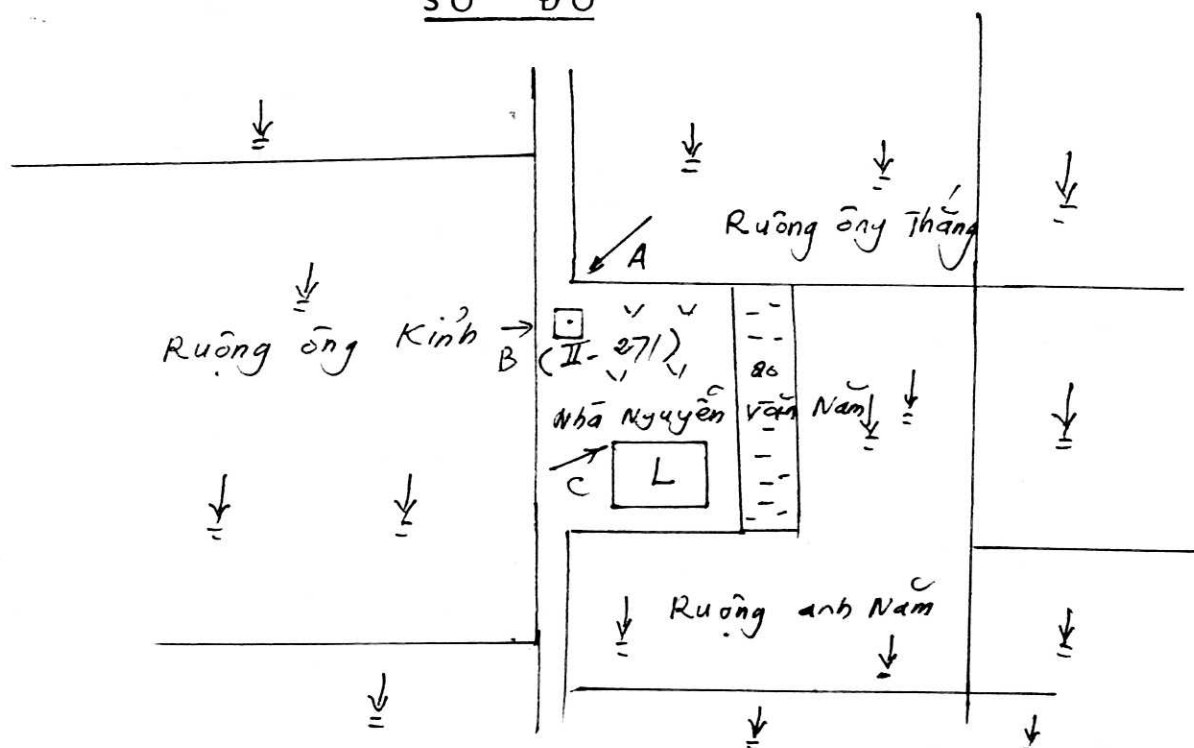 SƠ ĐỒ
Ruộng ông Thắng
A
Ruộng ông Kỉnh
B
(II-271)
ao
Nhà Nguyễn Văn Năm
C
L
Ruộng anh Năm